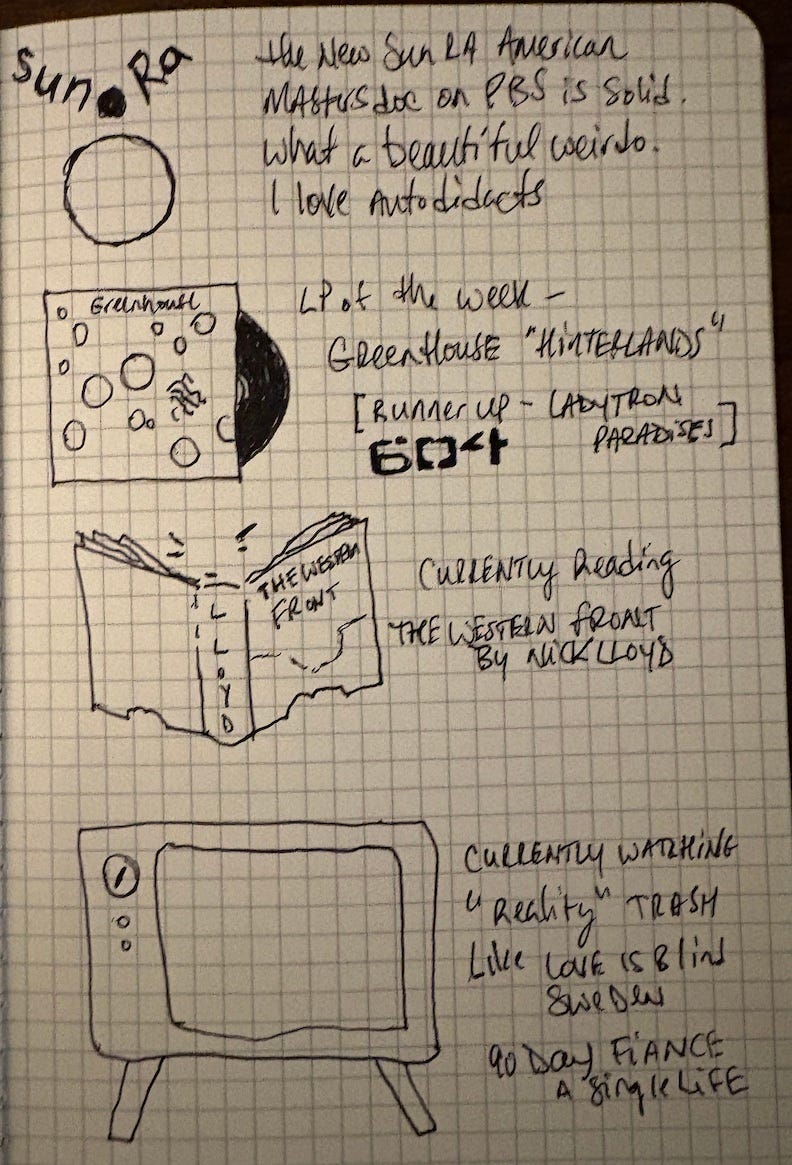 Sun Ra
the New Sun RA American
Masters doc on PBS is Solid.
What a beautiful weirdo.
I love Autodidacts
Greenhouse
LP of the week -
GREENHOUSE "HINTERLANDS"
[Runner up - LADYTRON
PARADISES]
604
THE WESTERN
FRONT
LLOYD
CURRENTLY Reading
THE WESTERN FRONT
By NICK LLOYD
CURRENTLY WATCHING
"Reality" TRASH
Like LOVE IS Blind
SWEDEN
90 Day FiANCE
A Single LiFE